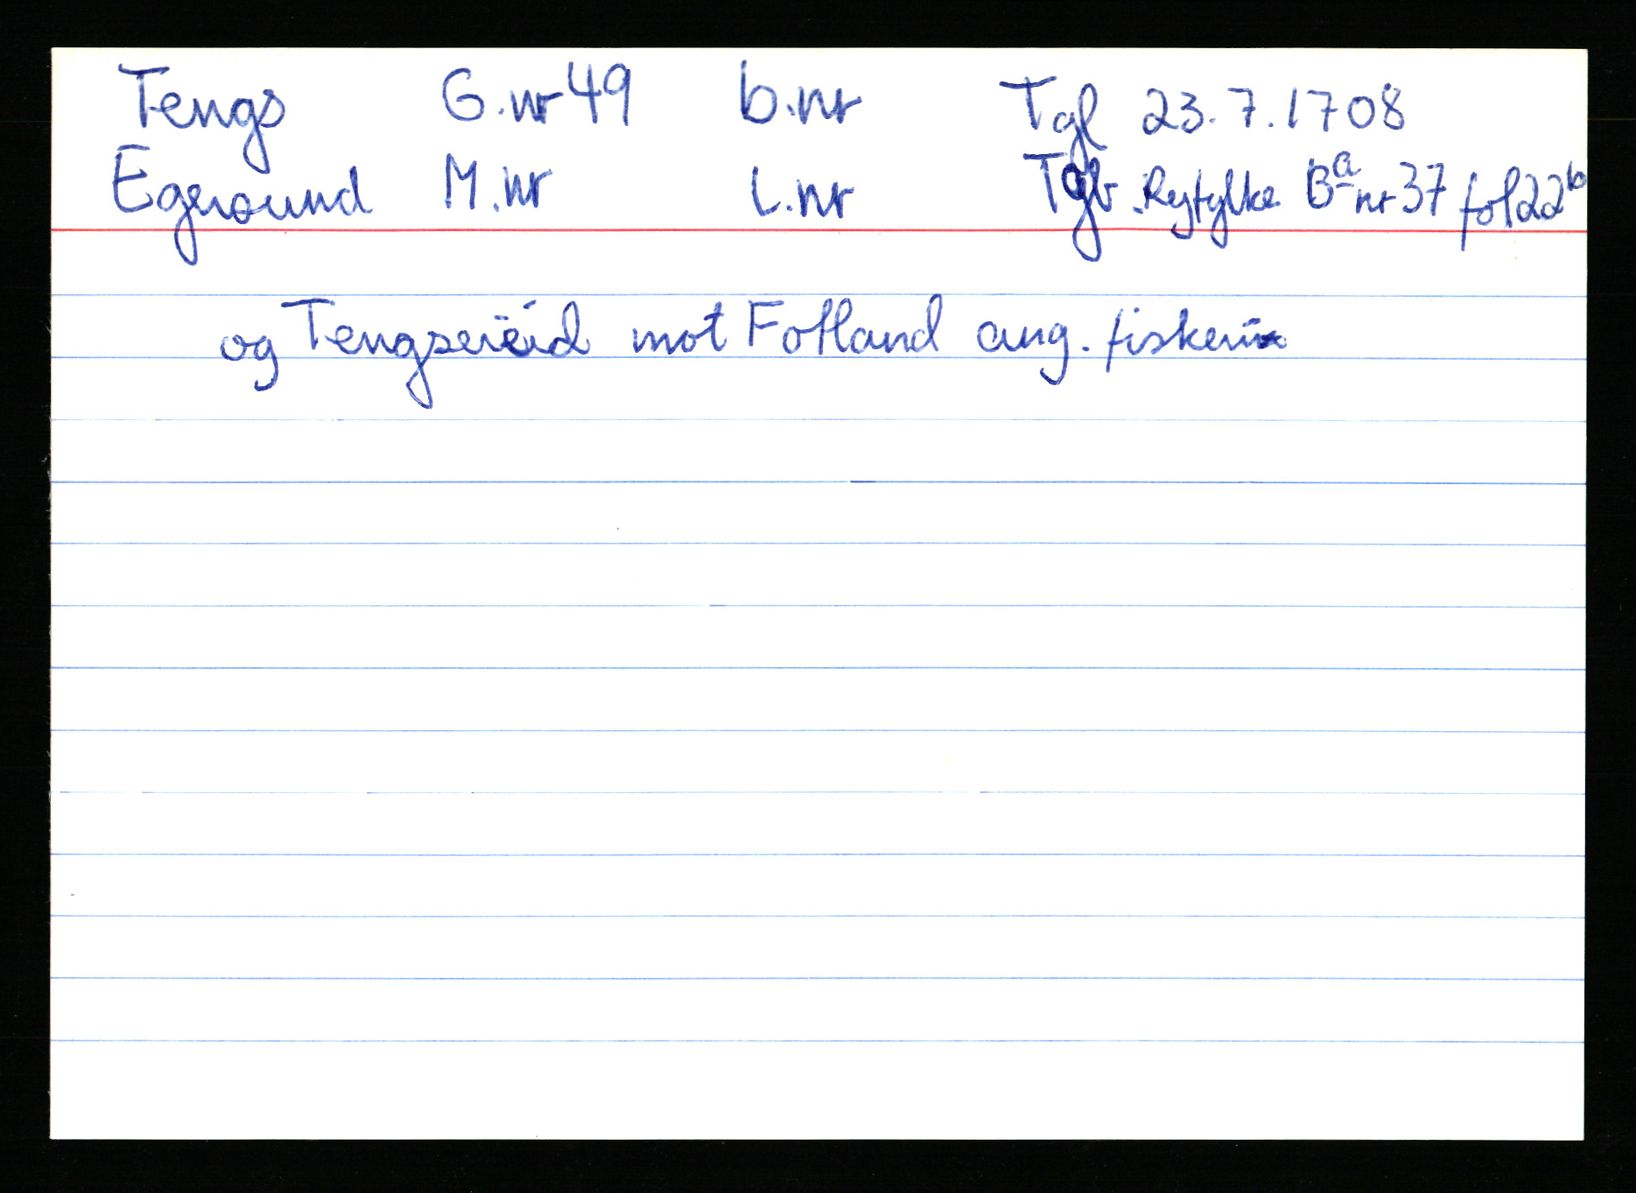 Tengs G.nr 49 b.nr Tgl 23.7.1708
Egersund M.nr L.nr Tgb. Ryfylke Bª nr 37 fol 22ᵇ
og Tengseieid mot Fotland ang. fiskeriet